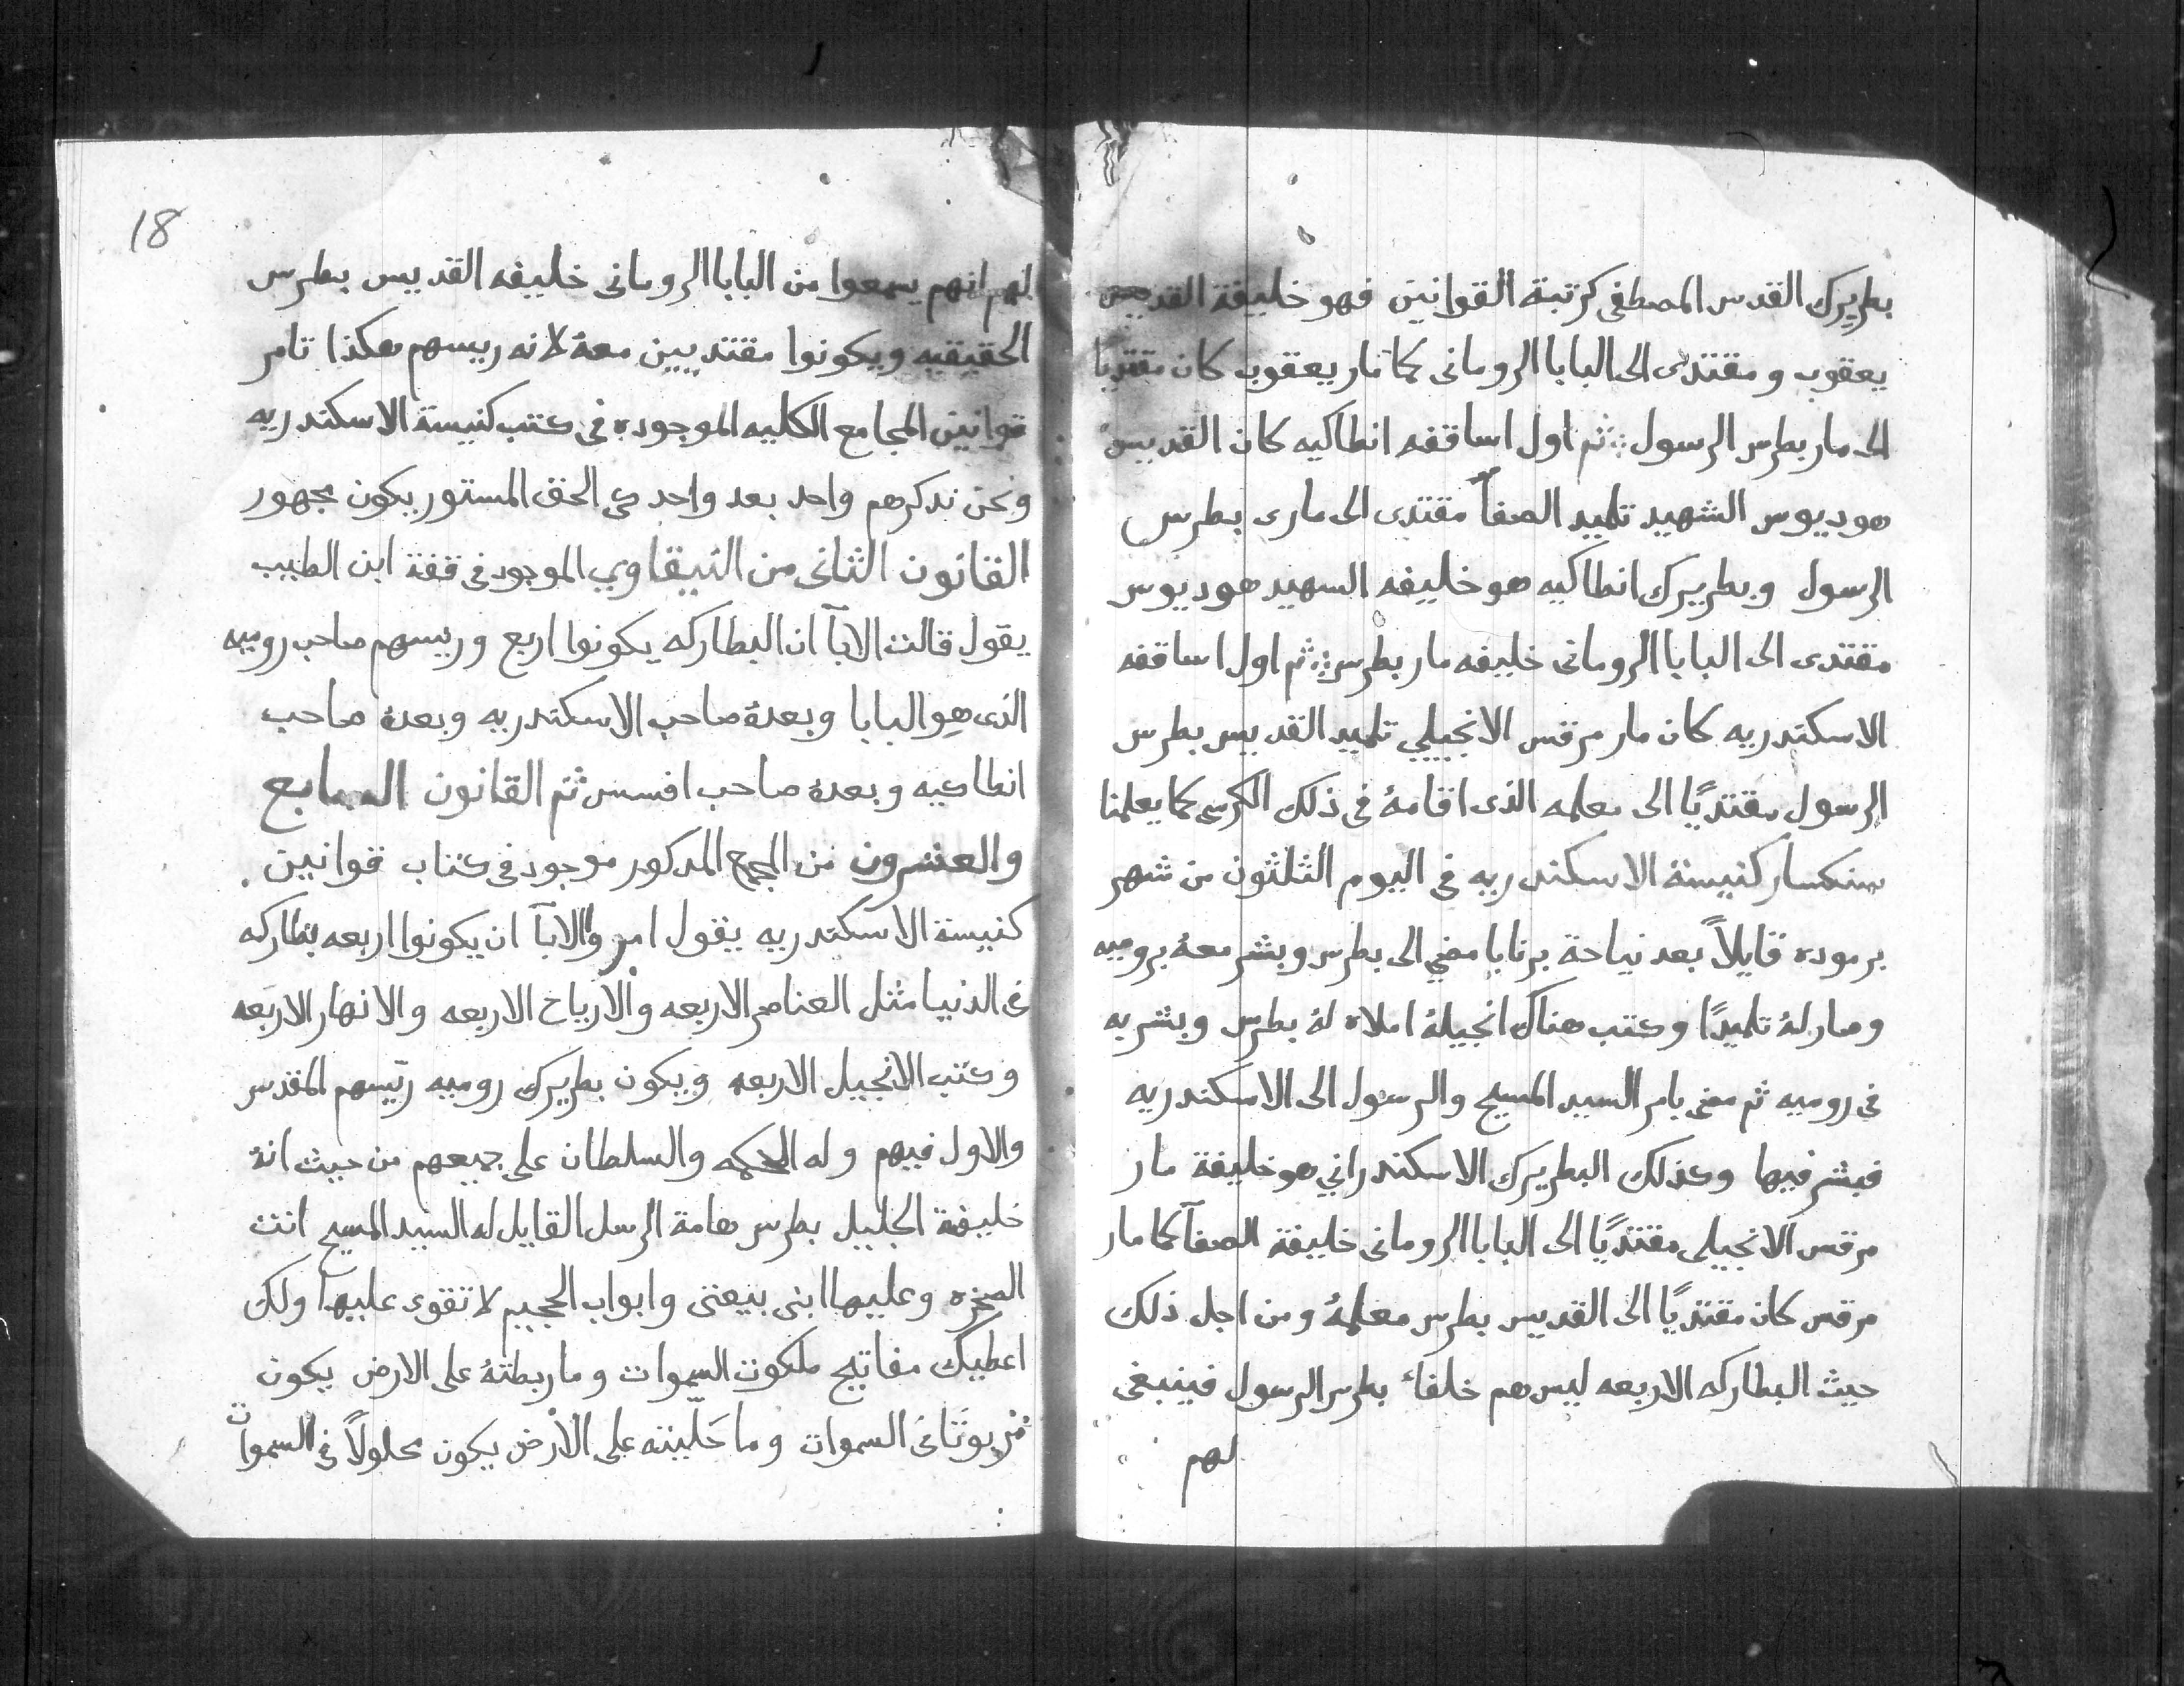 بطريرك القدس المصطفى كرتبة القوانين فهو خليفة القديس
يعقوب ومقتدى الى البابا الرومانى كما مار يعقوب كان مقتديا
الى مار بطرس الرسول ثم اول اساقفه انطاكيه كان القديس
هوديوس الشهيد تلميد الصفا مقتدى الى مارى بطرس
الرسول وبطريرك انطاكيه هو خليفه السهيد هوديوس
مقتدى الى البابا الرومانى خليفه مار بطرس ثم اول اساقفه
الاسكندريه كان مار مرقس الانجيلي تلميد القديس بطرس
الرسول مقتديًا الى معلمه الذى اقامهُ فى ذلك الكرسى كما يعلمنا
سنكسار كنيسة الاسكندريه فى اليوم الثلثون من شهر
برموده قايلاً بعد نياحة برنابا مضي الى بطرس وبشر معهُ بروميه
وصار لهُ تلميدًا وكتب هناك انجيلهُ املاه لهُ بطرس وبشر به
فى روميه ثم مضى بامر السيد المسيح والرسول الى الاسكندريه
فبشر فيها وكذلك البطريرك الاسكندراني هو خليفة مار
مرقس الانجيلى مقتديًا الى البابا الرومانى خليفة الصفآ كما مار
مرقس كان مقتديًا الى القديس بطرس معلمهُ ومن اجل ذلك
حيث البطاركه الاربعه ليس هم خلفاء بطرس الرسول فينبغى
لهم
18
لهم انهم يسمعوا من البابا الرومانى خليفه القديس بطرس
الحقيقيه ويكونوا مقتديين معهُ لانه رييسهم هكذا تامر
قوانين المجامع الكليه الموجوده فى كتب كنيسة الاسكندريه
ونحن ندكرهم واحد بعد واحد كى الحق المستور يكون مجهور
القانون الثانى من النيقاوي الموجود فى قفة ابن الطبيب
يقول قالت الابآ ان البطاركه يكونوا اربع ورييسهم صاحب روميه
الذى هو البابا وبعدهُ صاحب الاسكندريه وبعدهُ صاحب
انطاكيه وبعدهُ صاحب افسس ثم القانون السابع
والعشرون من المجمع المدكور موجود فى كتاب قوانين
كنيسة الاسكندريه يقول امر والابآ ان يكونوا اربعه بطاركه
فى الدنيا مثل العناصر الاربعه والارياح الاربعه والانهار الاربعه
وكتب الانجيل الاربعه ويكون بطريرك روميه ريّسهم المقدس
والاول فيهم وله الحكمه والسلطان على جميعهم من حيث انهُ
خليفة الجليل بطرس هامة الرسل القايل له السيد المسيح انت
الصخره وعليها ابنى بيعتى وابواب الجحيم لا تقوى عليها ولك
اعطيك مفاتيح ملكوت السموات وما ربطتهُ على الارض يكون
مربوتًا فى السموات وما حَلّيته على الارض يكون محلولاً فى السموات